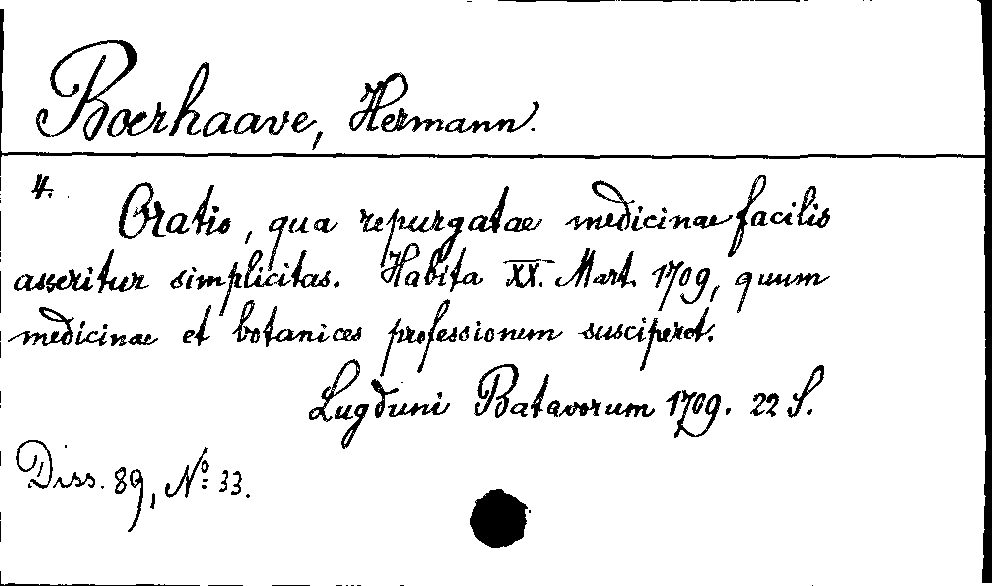 Boerhaave, Hermann.
4.
Oratio, qua repurgatae medicinae facilis
asseritur simplicitas. Habita XX. Mart. 1709, quum
medicinae et botanices professionem susciperet.
Lugduni Batavorum 1709. 22 S.
Diss. 89, No: 33.